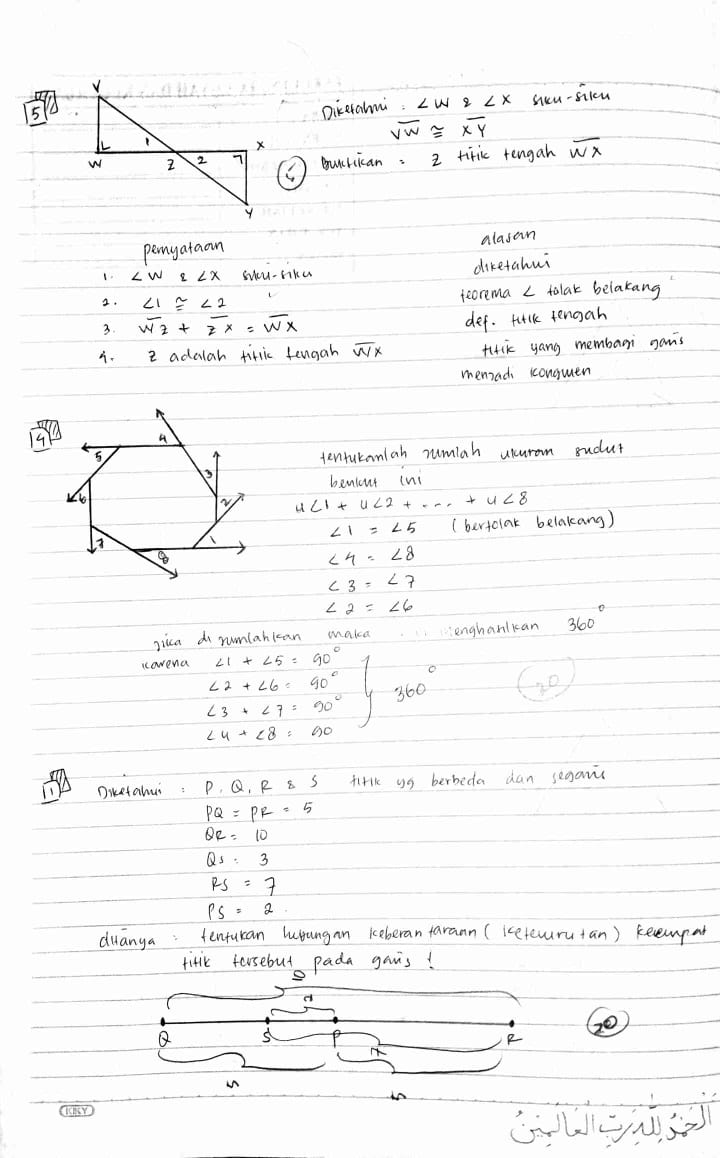 5
V
W
1
Z
2
X
Y
Diketahui : ∠W & ∠X siku-siku
VW ≅ XY
Buktikan : Z titik tengah WX
pernyataan
alasan
1. ∠W & ∠X siku-siku
diketahui
2. ∠1 ≅ ∠2
teorema ∠ tolak belakang
3. WZ + ZX = WX
def. titik tengah
4. Z adalah titik tengah WX
titik yang membagi garis
menjadi kongruen
4
4
5
3
6
2
7
8
1
tentukanlah jumlah ukuran sudut
berikut ini
u∠1 + u∠2 + ... + u∠8
∠1 = ∠5 (bertolak belakang)
∠4 = ∠8
∠3 = ∠7
∠2 = ∠6
jika di jumlahkan maka menghasilkan 360°
karena ∠1 + ∠5 = 90°
∠2 + ∠6 = 90°
∠3 + ∠7 = 90°
∠4 + ∠8 = 90
360°
20
1
Diketahui : P, Q, R & S titik yg berbeda dan segaris
PQ = PR = 5
QR = 10
QS = 3
RS = 7
PS = 2
ditanya : tentukan hubungan keberantaraan (keterurutan) keempat
titik tersebut pada garis !
10
2
Q
S
P
R
7
5
5
20
KKY
الْحَمْدُ لِلّٰهِ رَبِّ الْعَالَمِيْنَ